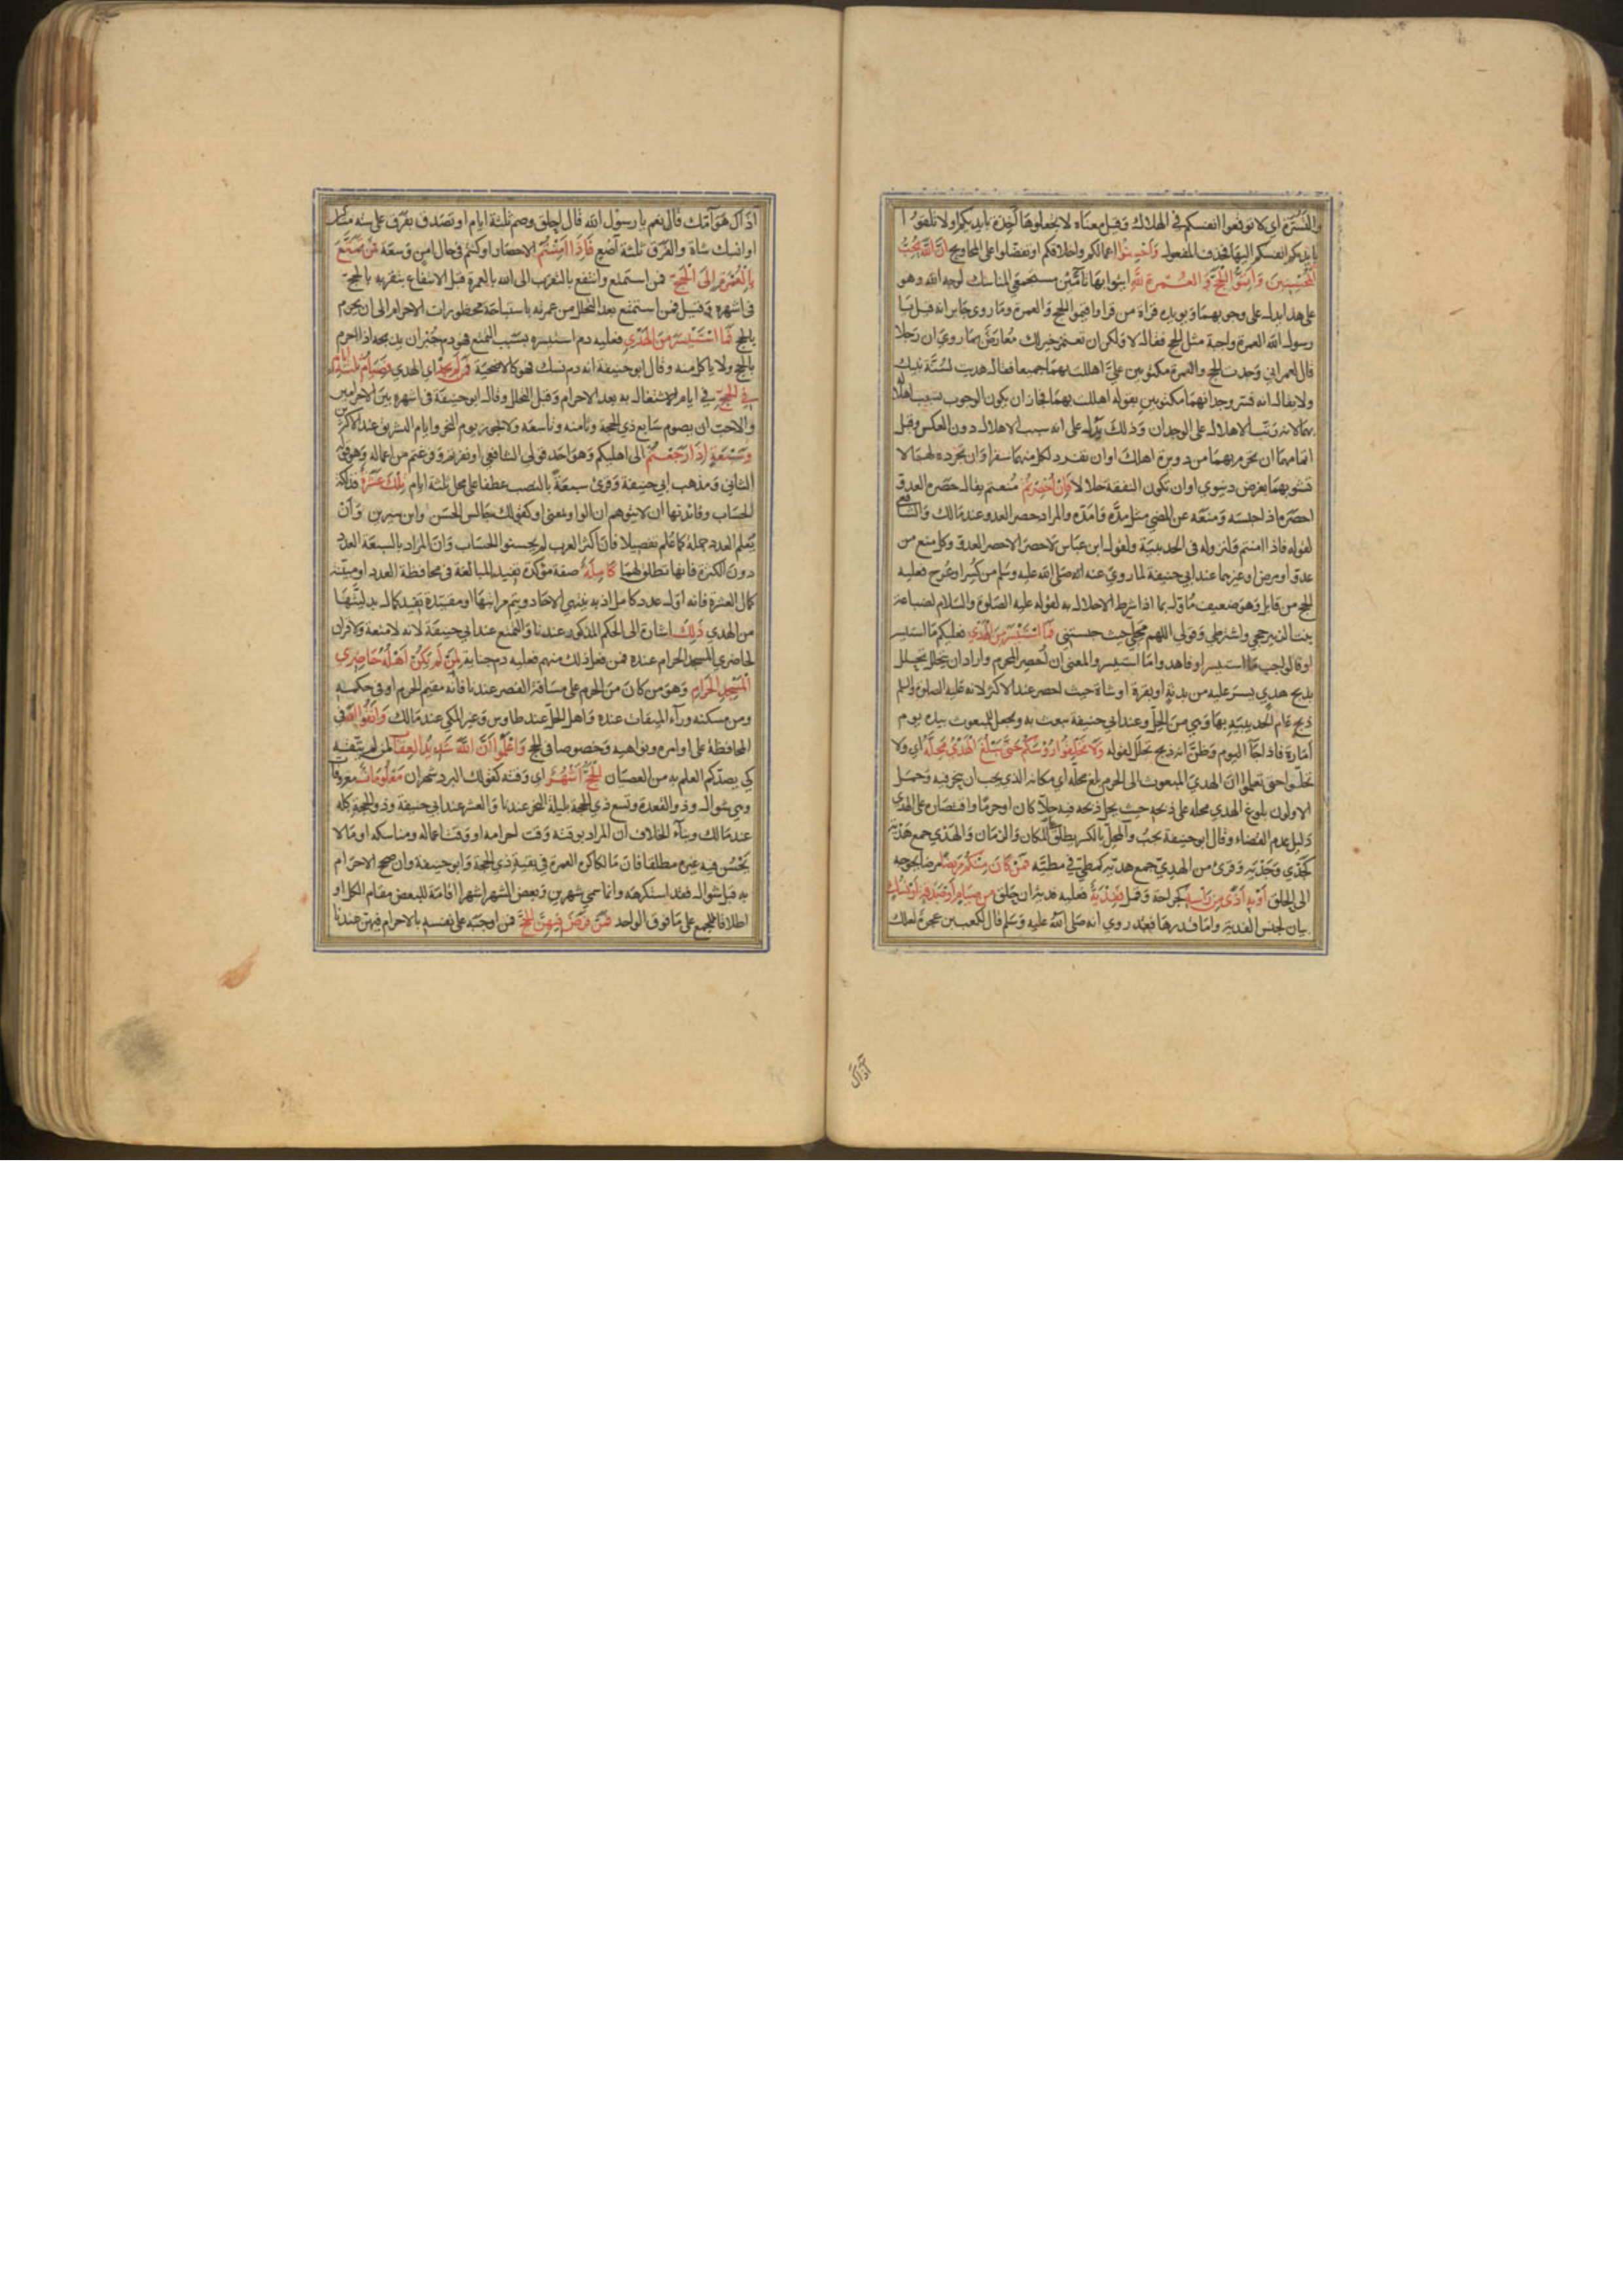 والتسترة اي لا توقعوا انفسكم في الهلاك وقيل معناه لا تجعلوها آخذة بايديكم او لا تلقوا
بايديكم انفسكم اليها فحذف المفعول وَاَحْسِنُوا اعمالكم واخلاقكم او تفضلوا على المحاويج اِنَّ اللهَ يُحِبُّ
الْمُحْسِنِينَ وَاَتِمُّوا الْحَجَّ وَالْعُمْرَةَ لِلّٰهِ ايتوا بهما تامين مستجمعي المناسك لوجه الله وهو
على هذا يدل على وجوبهما ويؤيده قراءة من قرأ واقيموا الحج والعمرة وما روى جابر انه قيل يا
رسول الله العمرة واجبة مثل الحج فقال لا ولكن ان تعتمر خير لك معارض بما روي ان رجلا
قال لعمر اني وجدت الحج والعمرة مكتوبين علي اهللت بهما جميعا فقال هديت لسنة نبيك
ولا يقال انه فسر وجدانهما مكتوبين بقوله اهللت بهما فجاز ان يكون الوجوب بسبب اهلاله
بهما لانه رتب الاهلال على الوجدان وذلك يدل على انه سبب الاهلال دون العكس وقيل
اتمامهما ان تحرم بهما من دويرة اهلك او ان تفرد لكل منهما سفرا او ان تجرده لهما لا
تشوبهما بغرض دنيوي او ان تكون النفقة حلالا فَاِنْ اُحْصِرْتُمْ منعتم يقال حصره العدو
احصره اذا حبسه ومنعه عن المضي مثل صده واصده والمراد حصر العدو عند مالك والشافعي
لقوله فاذا امنتم ولنزوله في الحديبية ولقول ابن عباس لا حصر الا حصر العدو وكل منع من
عدو او مرض او غيرهما عند ابي حنيفة لما روي عنه انه صلى الله عليه وسلم من كسر او عرج فعليه
الحج من قابل وهو ضعيف مأول بما اذا شرط الاحلال به لقوله عليه الصلوة والسلام لضباعة
بنت الزبير حجي واشترطي وقولي اللهم محلي حيث حبستني فَمَا اسْتَيْسَرَ مِنَ الْهَدْيِ فعليكم ما استيسر
او فالواجب ما استيسر او فاهدوا ما استيسر والمعنى ان احصر المحرم واراد ان يتحلل تحلل
بذبح هدي يسر عليه من بدنة او بقرة او شاة حيث احصر عند الاكثر لانه عليه الصلوة والسلم
ذبح عام الحديبية بها وهي من الحل وعند ابي حنيفة يبعث به ويجعل للمبعوث بيده يوم
امارة فاذا جآ اليوم وظن انه ذبح تحلل لقوله وَلَا تَحْلِقُوا رُؤُسَكُمْ حَتّٰى يَبْلُغَ الْهَدْيُ مَحِلَّهُ اي ولا
تحلوا حتى تعلموا ان الهدي المبعوث الى الحرم بلغ محله اي مكانه الذي يجب ان ينحر فيه وحمل
الاولون بلوغ الهدي محله على ذبحه حيث يحل ذبحه فيه حلا كان او حرما واقتصاره على الهدي
دليل عدم القضاء وقال ابو حنيفة يجب والمحل بالكسر يطلق للمكان والزمان والهدي جمع هدية
كجدي وجدية وقرئ من الهدي جمع هدية كمطي في مطية فَمَنْ كَانَ مِنْكُمْ مَرِيضًا مرضا يحوجه
الى الحلق اَوْ بِهِ اَذًى مِنْ رَأْسِهِ كجراحة وقمل فَفِدْيَةٌ فعليه فدية ان حلق مِنْ صِيَامٍ اَوْ صَدَقَةٍ اَوْ نُسُكٍ
بيان لجنس الفدية واما قدرها فقد روي انه صلى الله عليه وسلم قال لكعب بن عجرة لعلك
آذاك
آذاك هوامك قال نعم يا رسول الله قال احلق وصم ثلثة ايام او تصدق بفرق على ستة مساكين
او انسك شاة والفرق ثلثة آصع فَاِذَا اَمِنْتُمْ الاحصار او كنتم في حال امن وسعة فَمَنْ تَمَتَّعَ
بِالْعُمْرَةِ اِلَى الْحَجِّ فمن استمتع وانتفع بالتقرب الى الله بالعمرة قبل الانتفاع بتقربه بالحج
في اشهره وقيل فمن استمتع بعد التحلل من عمرته باستباحة محظورات الاحرام الى ان يحرم
بالحج فَمَا اسْتَيْسَرَ مِنَ الْهَدْيِ فعليه دم استيسره بسبب التمتع فهو دم جبران يذبحه اذا احرم
بالحج ولا ياكل منه وقال ابو حنيفة انه دم نسك فهو كالاضحية فَمَنْ لَمْ يَجِدْ اي الهدي فَصِيَامُ ثَلٰثَةِ اَيَّامٍ
فِي الْحَجِّ في ايام الاشتغال به بعد الاحرام وقبل التحلل وقال ابو حنيفة في اشهره بين الاحرامين
والاحب ان يصوم سابع ذي الحجة وثامنه وتاسعه ولا يجوز يوم النحر وايام التشريق عند الاكثرين
وَسَبْعَةٍ اِذَا رَجَعْتُمْ الى اهليكم وهو احد قولي الشافعي او نفرتم وفرغتم من اعماله وهو قوله
الثاني ومذهب ابي حنيفة وقرئ سبعة بالنصب عطفا على محل ثلثة ايام تِلْكَ عَشَرَةٌ فذلكة
الحساب وفائدتها ان لا يتوهم ان الواو بمعنى او كقولك جالس الحسن وابن سيرين وان
يعلم العدد جملة كما علم تفصيلا فان اكثر العرب لم يحسنوا الحساب وان المراد بالسبعة العدد
دون الكثرة فانها تطلق لهما كَامِلَةٌ صفة مؤكدة تفيد المبالغة في محافظة العدد او مبينة
كمال العشرة فانه اول عدد كامل اذ به ينتهي الاحاد ويتم مراتبها او مقيدة تقيد كمال بدليتها
من الهدي ذٰلِكَ اشارة الى الحكم المذكور عندنا والتمتع عند ابي حنيفة لانه لا متعة ولا قران
لحاضري المسجد الحرام عنده فمن فعل ذلك منهم فعليه دم جناية لِمَنْ لَمْ يَكُنْ اَهْلُهُ حَاضِرِي
الْمَسْجِدِ الْحَرَامِ وهو من كان من الحرم على مسافة القصر عندنا فانه مقيم الحرم او في حكمه
ومن مسكنه ورآء الميقات عنده واهل الحل عند طاوس وغير المكي عند مالك وَاتَّقُوا اللهَ في
المحافظة على اوامره ونواهيه وخصوصا في الحج وَاعْلَمُوا اَنَّ اللهَ شَدِيدُ الْعِقَابِ لمن لم يتقه
كي يصدكم العلم به عن العصيان اَلْحَجُّ اَشْهُرٌ اي وقته كقولك البرد شهران مَعْلُومَاتٌ معروفات
وهي شوال وذو القعدة وتسع ذي الحجة بليلة النحر عندنا والعشر عند ابي حنيفة وذو الحجة كله
عند مالك وبنآء الخلاف ان المراد بوقته وقت احرامه او وقت اعماله ومناسكه او ما لا
يحسن فيه غيره مطلقا فان مالكا كره العمرة في بقية ذي الحجة وابو حنيفة وان صحح الاحرام
به قبل شوال فقد استكرهه وانما سمي شهرين وبعض الشهر اشهرا اقامة للبعض مقام الكل او
اطلاقا للجمع على ما فوق الواحد فَمَنْ فَرَضَ فِيهِنَّ الْحَجَّ فمن اوجبه على نفسه بالاحرام فيهن عندنا